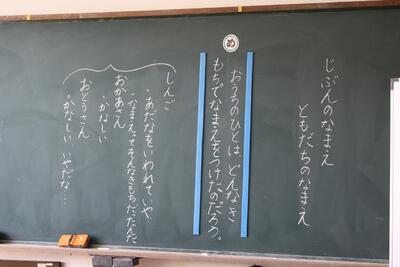 じぶんのなまえ
ともだちのなまえ
め
おうちのひとは、どんなき
もちでなまえをつけたのだろう。
しんご
・あだなをいわれていや
・なまえってそんなきもちだったんだ
おかあさん
・かなしい
おとうさん
・かなしい いやだな…